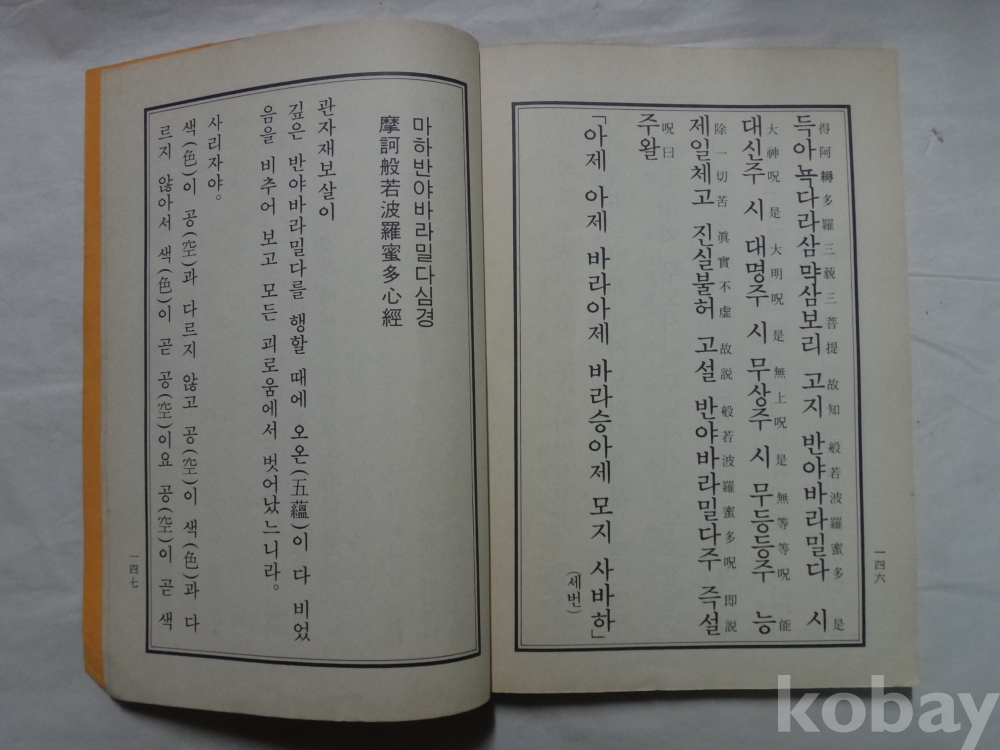 得阿耨多羅三藐三菩提 故知 般若波羅蜜多 是
득아뇩다라삼먁삼보리 고지 반야바라밀다 시
大神呪 是 大明呪 是 無上呪 是 無等等呪 能
대신주 시 대명주 시 무상주 시 무등등주 능
除一切苦 眞實不虛 故説 般若波羅蜜多呪 即説
제일체고 진실불허 고설 반야바라밀다주 즉설
呪曰
주왈
「아제 아제 바라아제 바라승아제 모지 사바하」
(세번)
一四六
마하반야바라밀다심경
摩訶般若波羅蜜多心經
관자재보살이
깊은 반야바라밀다를 행할 때에 오온(五蘊)이 다 비었
음을 비추어 보고 모든 괴로움에서 벗어났느니라。
사리자야。
색(色)이 공(空)과 다르지 않고 공(空)이 색(色)과 다
르지 않아서 색(色)이 곧 공(空)이요 공(空)이 곧 색
一四七
kobay